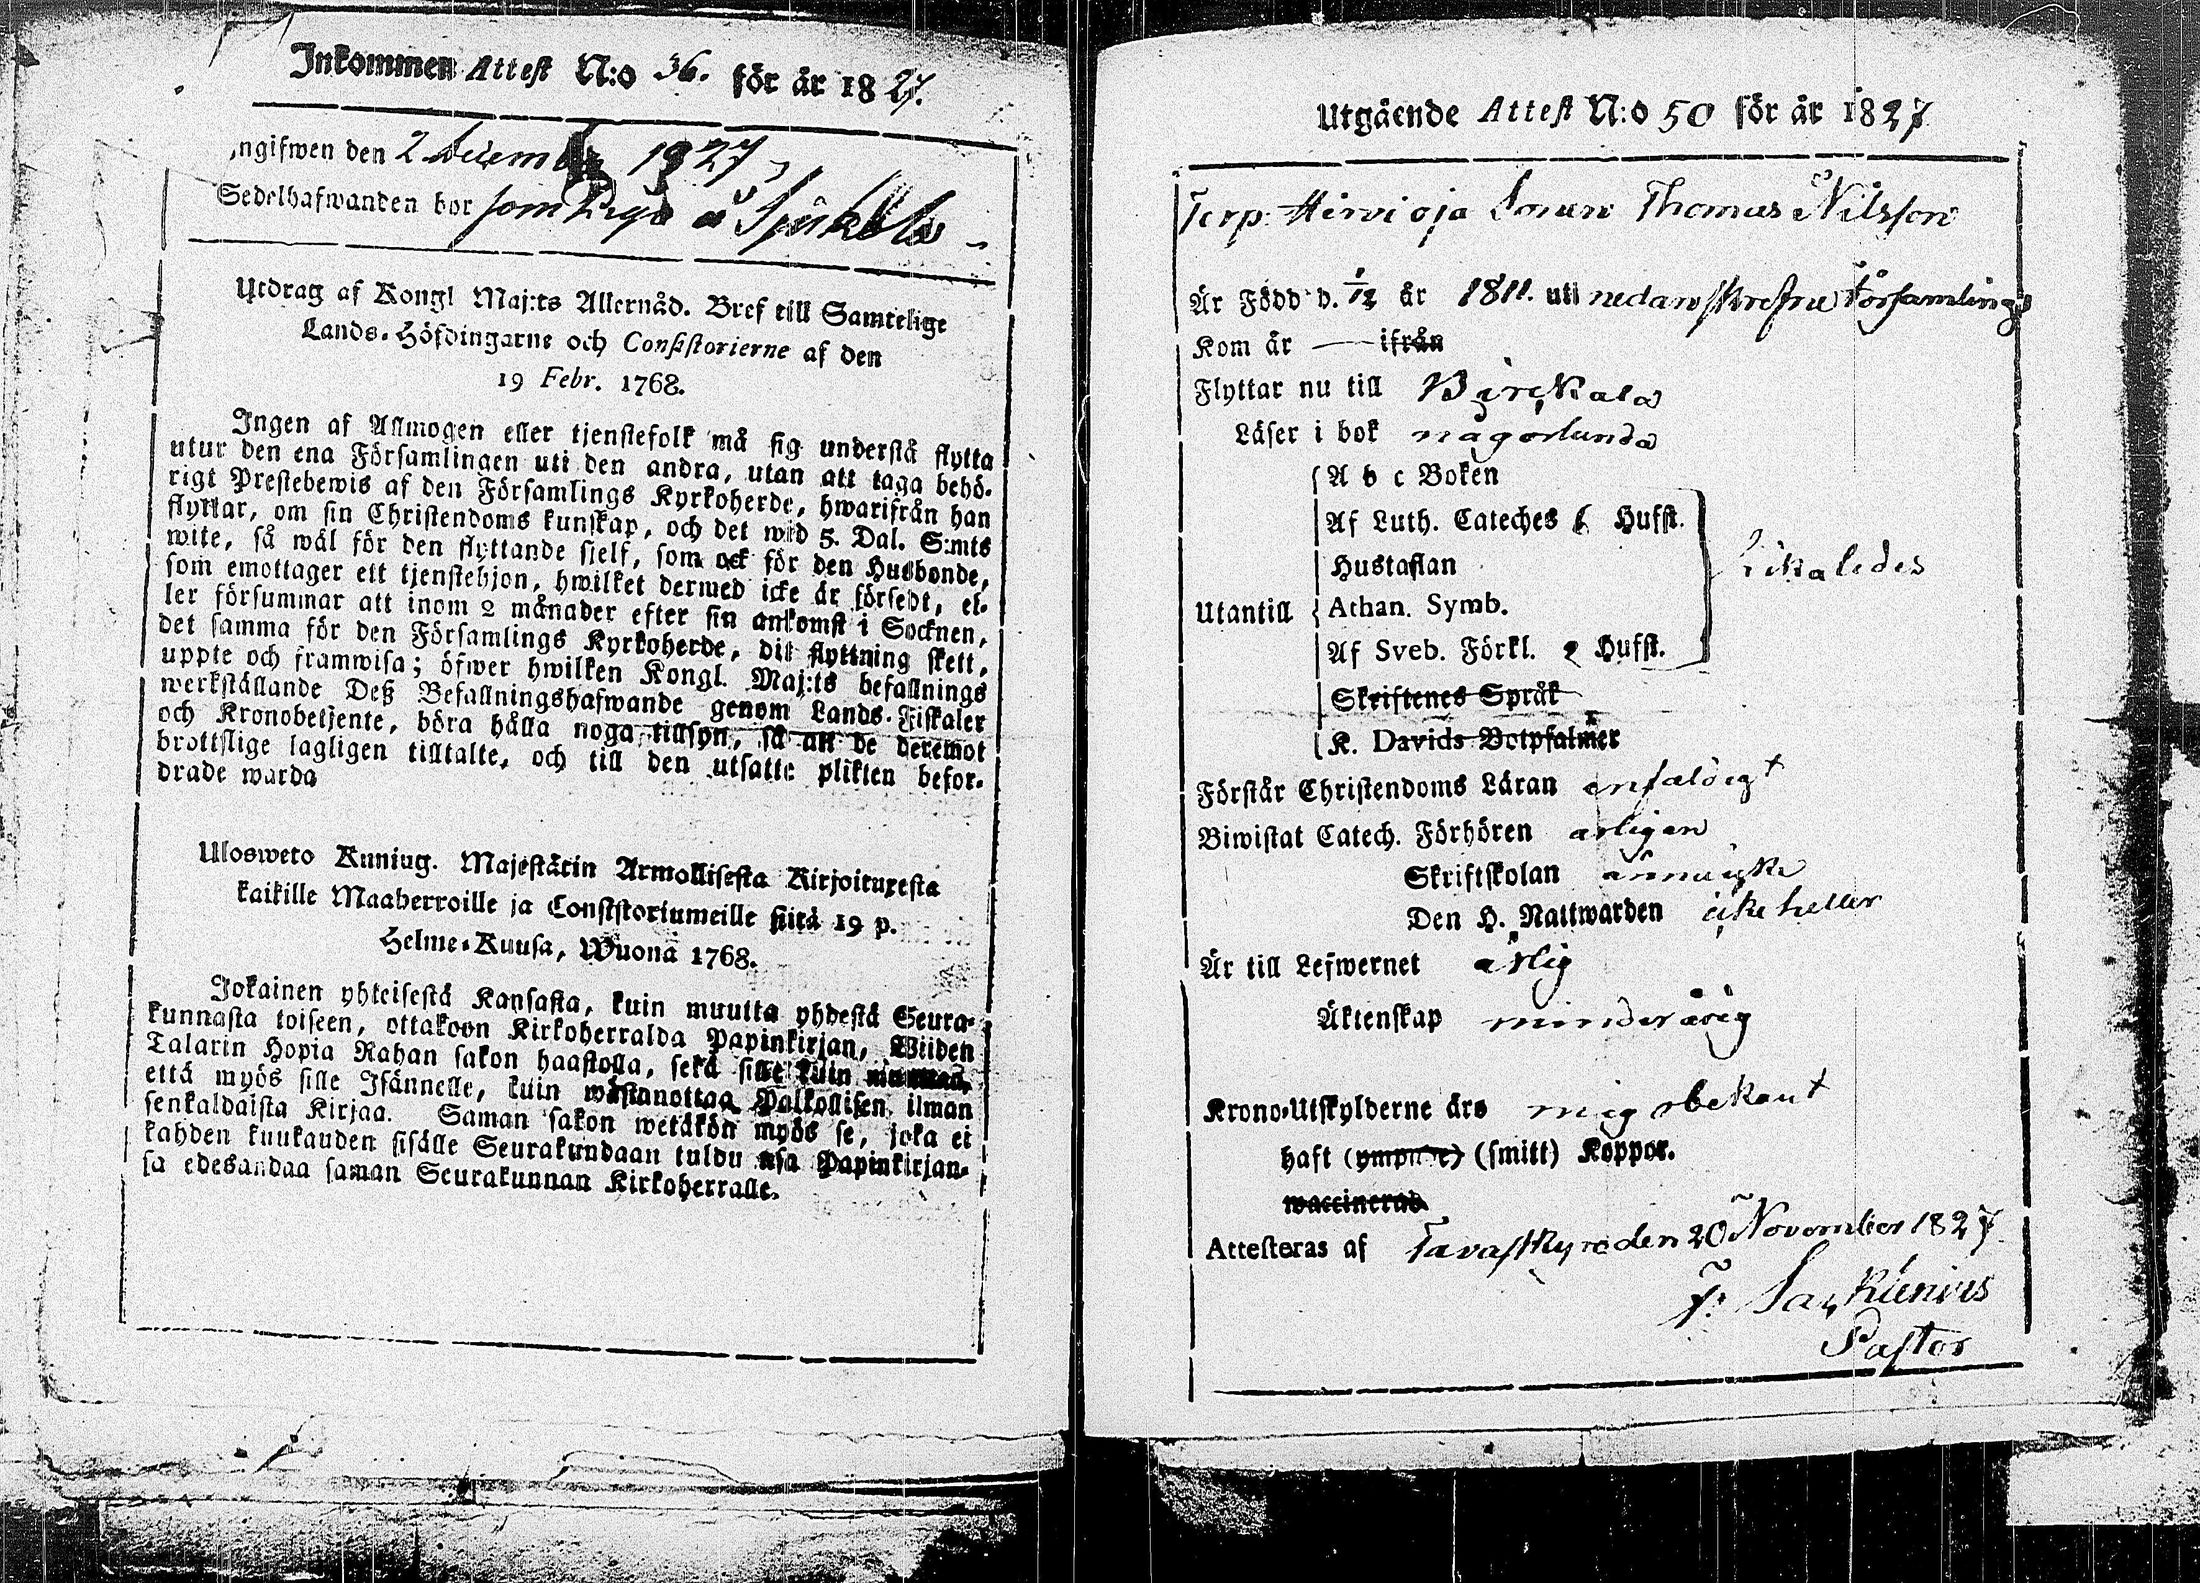 Inkommen Attest N:o 36. för år 1827.
ngifwen den 2 December 1827,
Sedelhafwanden bor som å
Utdrag af Kongl Maj:ts Allernåd. Bref till Samtelige
Lands-Höfdingarne och Consistorierne af den
19 Febr. 1768.
Ingen af Allmogen eller tjenstefolk må sig understå flytta
utur den ena Församlingen uti den andra, utan att taga behö-
rigt Prestebewis af den Församlings Kyrkoherde, hwarifrån han
flyttar, om sin Christendoms kunskap, och det wid 5. Dal. S:mts
wite, så wäl för den flyttande sjelf, som ock för den Husbonde,
som emottager ett tjenstehjon, hwilket dermed icke är försedt, el-
ler försummar att inom 2 månader efter sin ankomst i Socknen,
det samma för den Församlings Kyrkoherde, dit flyttning skett,
uppte och framwisa; öfwer hwilken Kongl. Maj:ts befallnings
werkställande Deß Befallningshafwande genom Lands-Fiskaler
och Kronobetjente, böra hålla noga tillsyn, så att de deremot
brottslige lagligen tilltalte, och till den utsatte plikten befor-
drade warda
Ulosweto Kuniug. Majestätin Armollisesta Kirjoituxesta
kaikille Maaherroille ja Consistoriumeille siitä 19 p.
Helme-Kuusa, Wuonä 1768.
Jokainen yhteisestä Kansasta, kuin muutta yhdestä Seura-
kunnasta toiseen, ottakoon Kirkoherralda Papinkirjan, Wiiden
Talarin Hopia Rahan sakon haastolla, sekä sille kuin muuttaa,
että myös sille Isännelle, kuin wastanottaa Palkollisen ilman
senkaldaista Kirjaa. Saman sakon wetäkön myös se, joka ei
kahden kuukauden sisälle Seurakundaan tuldu ansa Papinkirjan-
sa edesandaa saman Seurakunnan Kirkoherralle.
Utgående Attest N:o 50 för år 1827
Torp. Hirvioja Sonen Thomas Nilsson
Är Född d. 1/12 år 1811. uti nedanskrefne Församling
Kom år — ifrån
Flyttar nu till Birckala
Läser i bok någorlunda
A b c Boken
Af Luth. Cateches 6 Hufst.
Hustaflan
Likaledes
Utantill Athan. Symb.
Af Sveb. Förkl. 2 Hufst.
Skriftenes Språk
K. Davids Botpsalmer
Förstår Christendoms Läran enfaldigt
Biwistat Catech. Förhören årligen
Skriftskolan ännu icke
Den H. Nattwarden icke heller
Är till Lefwernet ärlig
Äktenskap minderårig
Krono-Utskylderne äro mig obekant
haft (ympade) (smitt) Koppor.
waccinerad
Attesteras af Tavastkyro den 20 November 1827.
Pastor